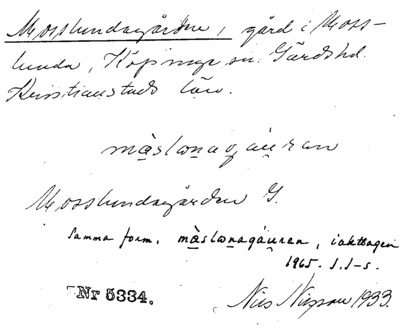 Mosslundagården, gård i Moss-
lunda, Köpinge sn. Gärds hd.
Kristianstads län.
måslo̲na̲gáu̲ran
Mosslundagården G.
Samma form, må̲slo̲na̲gáu̲ran, iakttagen
1965. J.J-s.
Nr 5334.
Nils 1933.